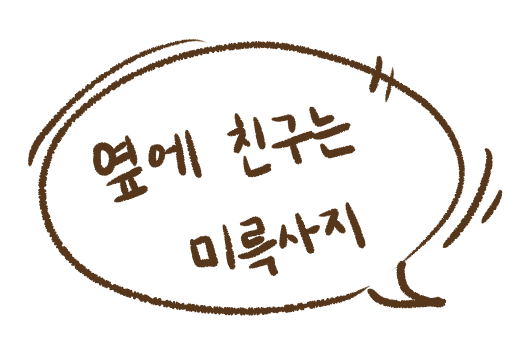 옆에 친구는
미륵사지